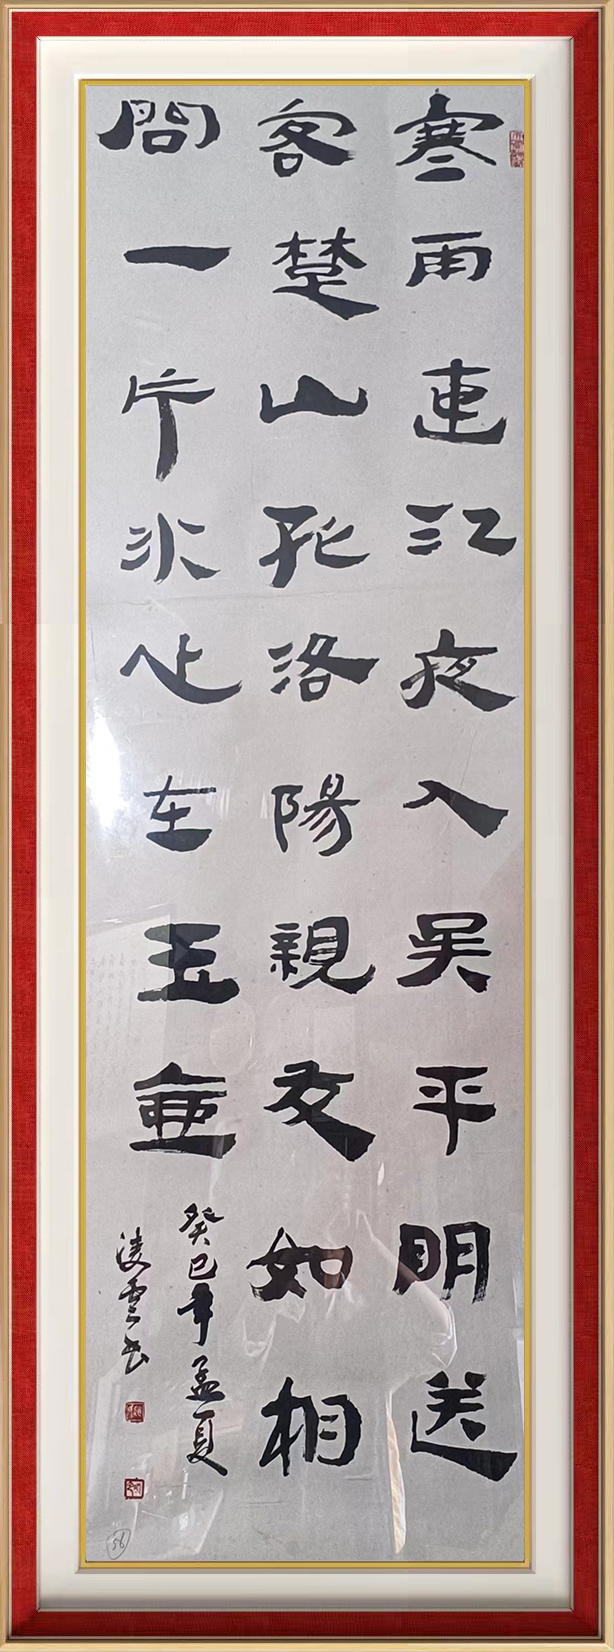 寒雨連江夜入吴平明送
客楚山孤洛陽親友如相
問一片冰心在玉壺
癸巳年孟夏
凌雲书
56